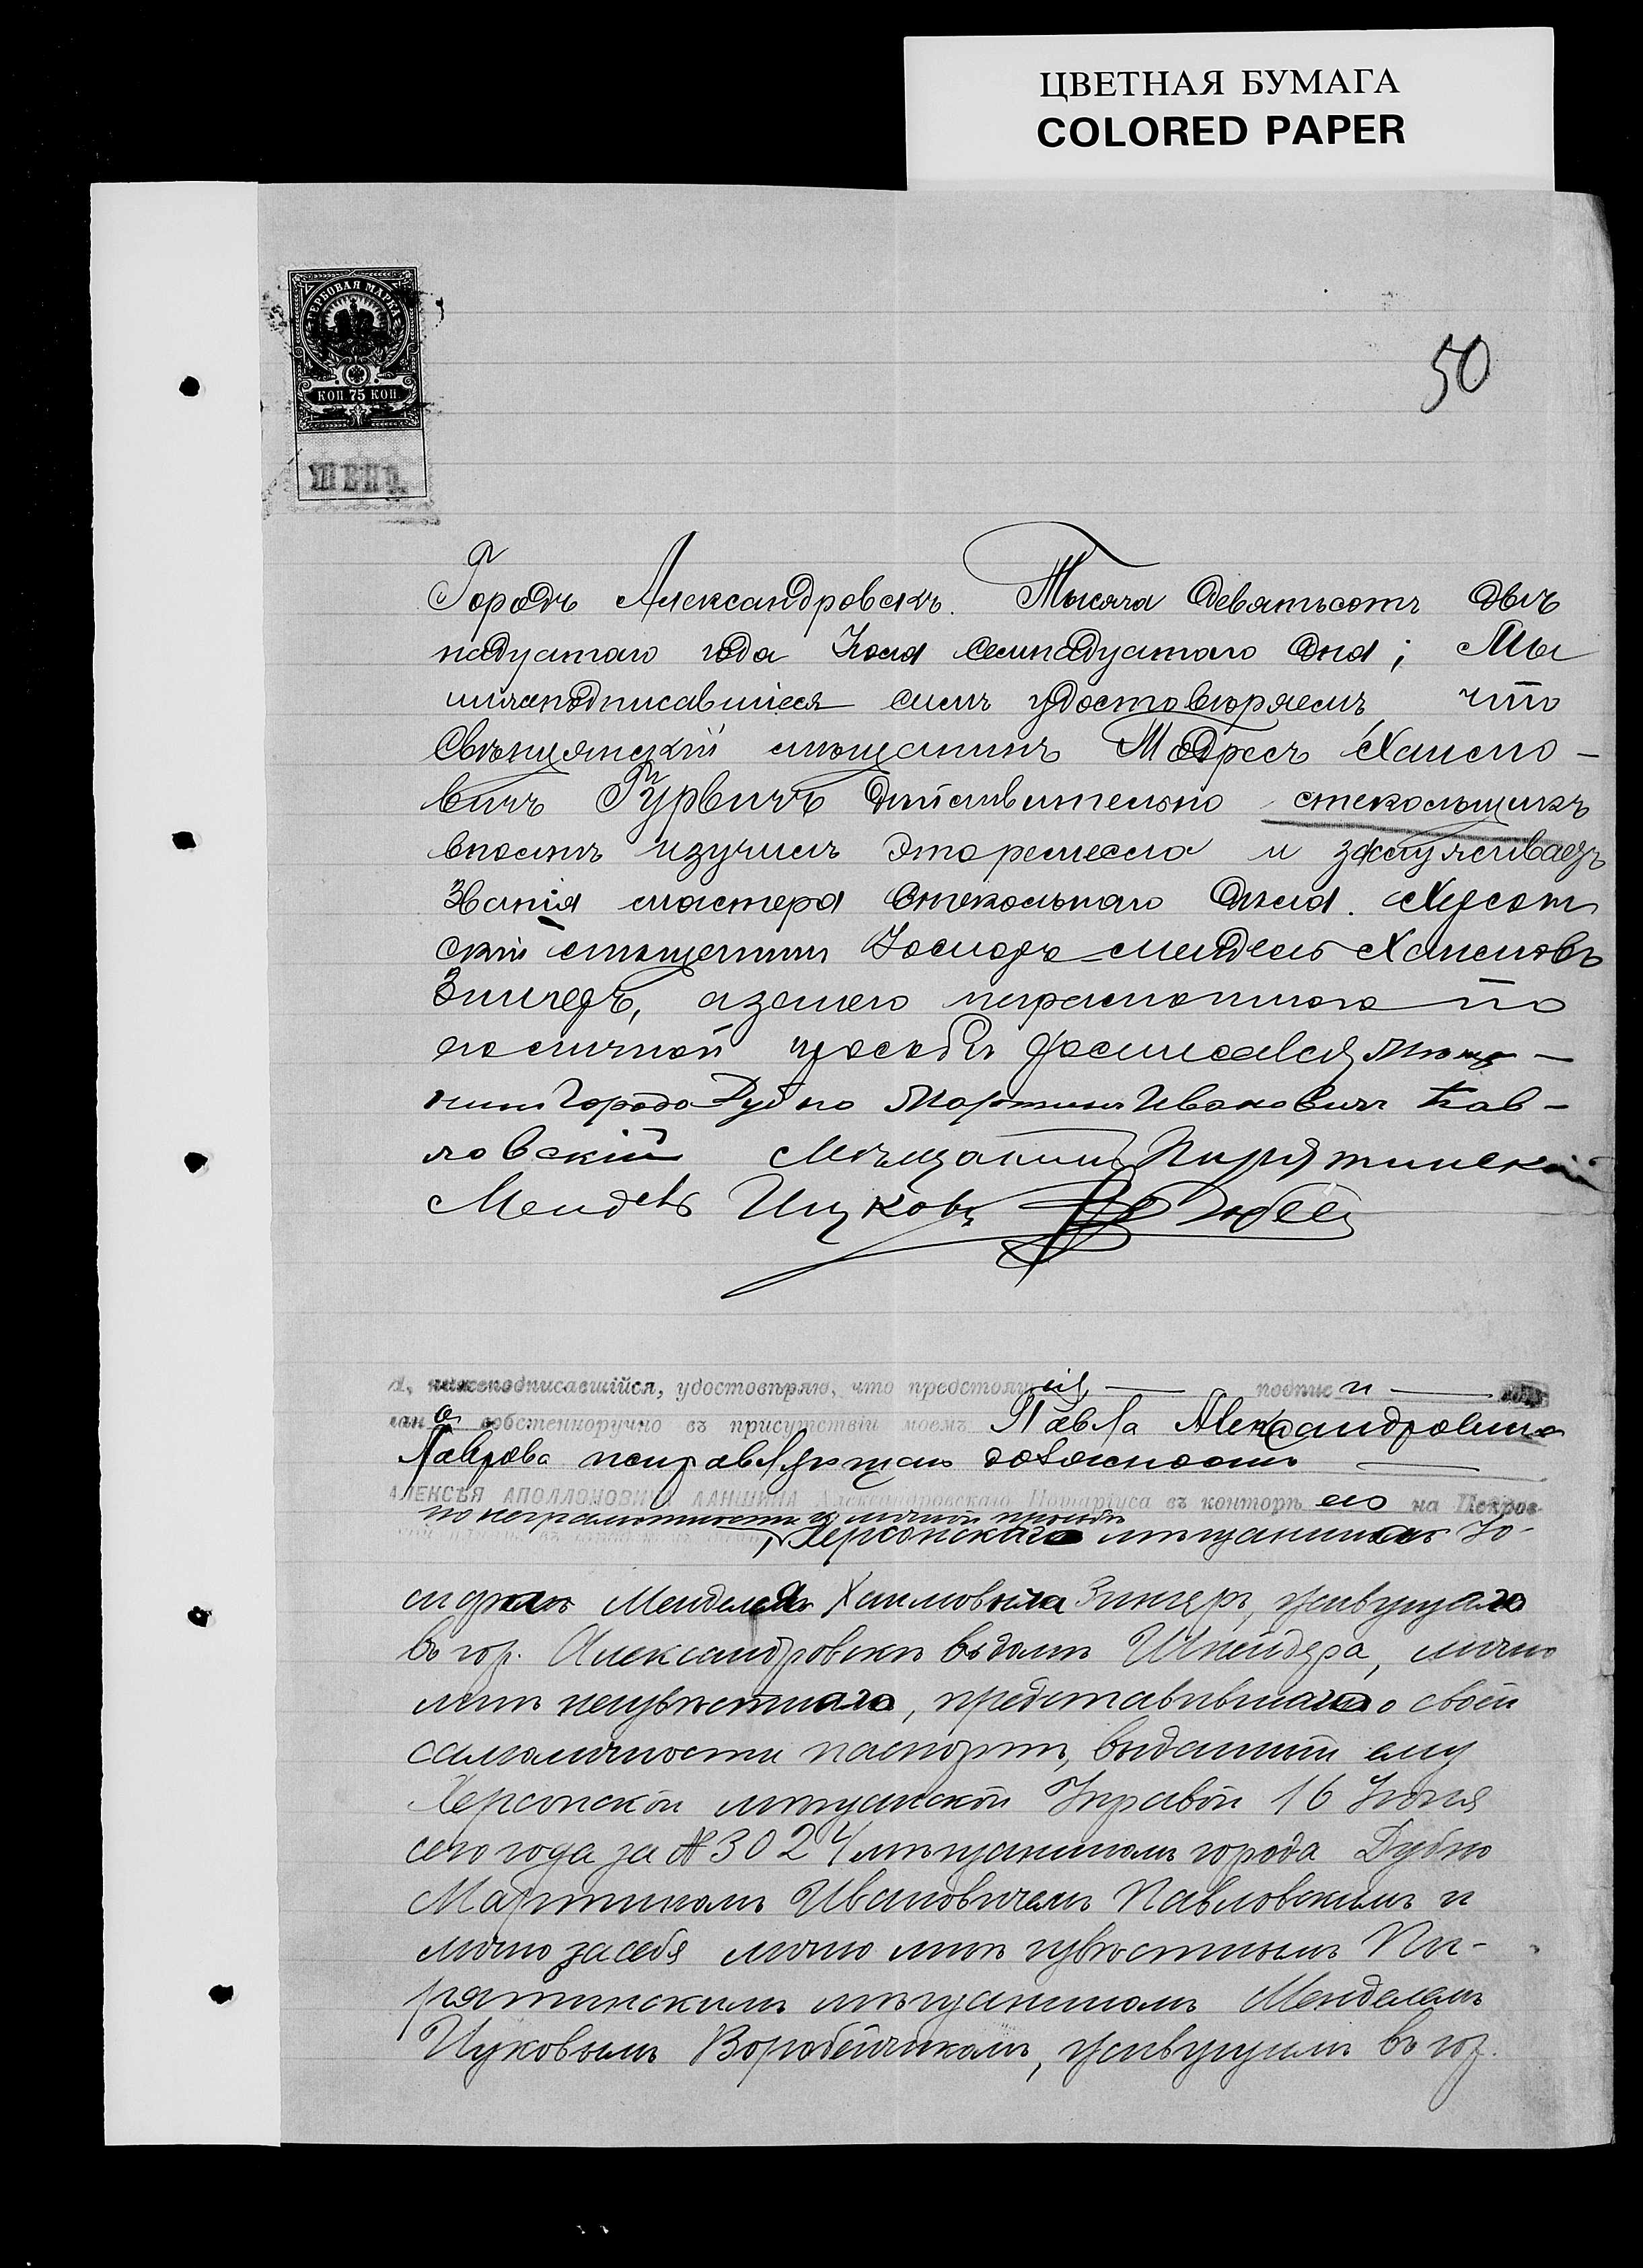 ЦВЕТНАЯ БУМАГА
COLORED PAPER
ГЕРБОВАЯ МАРКА
КОП 75 КОП
50
Городъ Александровскъ. Тысяча девятьсотъ двѣ
надцатаго года Іюля семнадцатаго дня; Мы
нижеподписавшіеся симъ удостовѣряемъ что
Свѣнцянскій мѣщанинъ Мордхесъ Хаимо-
вичъ Гурвичъ дѣйствительно стекольщикъ
вполнѣ изучилъ это ремесло и заслуживаетъ
Званія мастера стекольнаго дѣла. Херсон
скій мѣщанинъ Іосифъ Мендель Хаимовъ
Зингеръ, а за него неграмотнаго по
его личной просьбѣ росписался Мѣща-
нинъ Города Дубно Мартинъ Ивановичъ Пав-
ловскій Мѣщанинъ Пирятинскій
Мендель Ицковъ
Я, нижеподписавшійся, удостовѣряю, что предстоящія подписи
сдѣланы собственноручно въ присутствіи моемъ Павла Александровича
Лаврова исправляющаго должность
АЛЕКСѢЯ АПОЛЛОНОВИЧА ЛАНШИНА Александровскаго Нотаріуса въ конторѣ его на Покров-
по неграмотности и личной просьбѣ
Херсонскаго мѣщанина Іо-
сифа Менделя Хаимовича Зингеръ, живущаго
въ гор. Александровскѣ въ домѣ Шнейдера, лично
мнѣ неизвѣстнаго, представившаго о своей
самоличности паспортъ, выданный ему
Херсонской мѣщанской Управой 16 Іюня
сего года за № 3024 мѣщаниномъ города Дубно
Мартиномъ Ивановичемъ Павловскимъ и
лично за себя лично мнѣ извѣстнымъ Пи-
рятинскимъ мѣщаниномъ Менделемъ
Ицковымъ Воробейчикомъ, живущимъ въ гор.